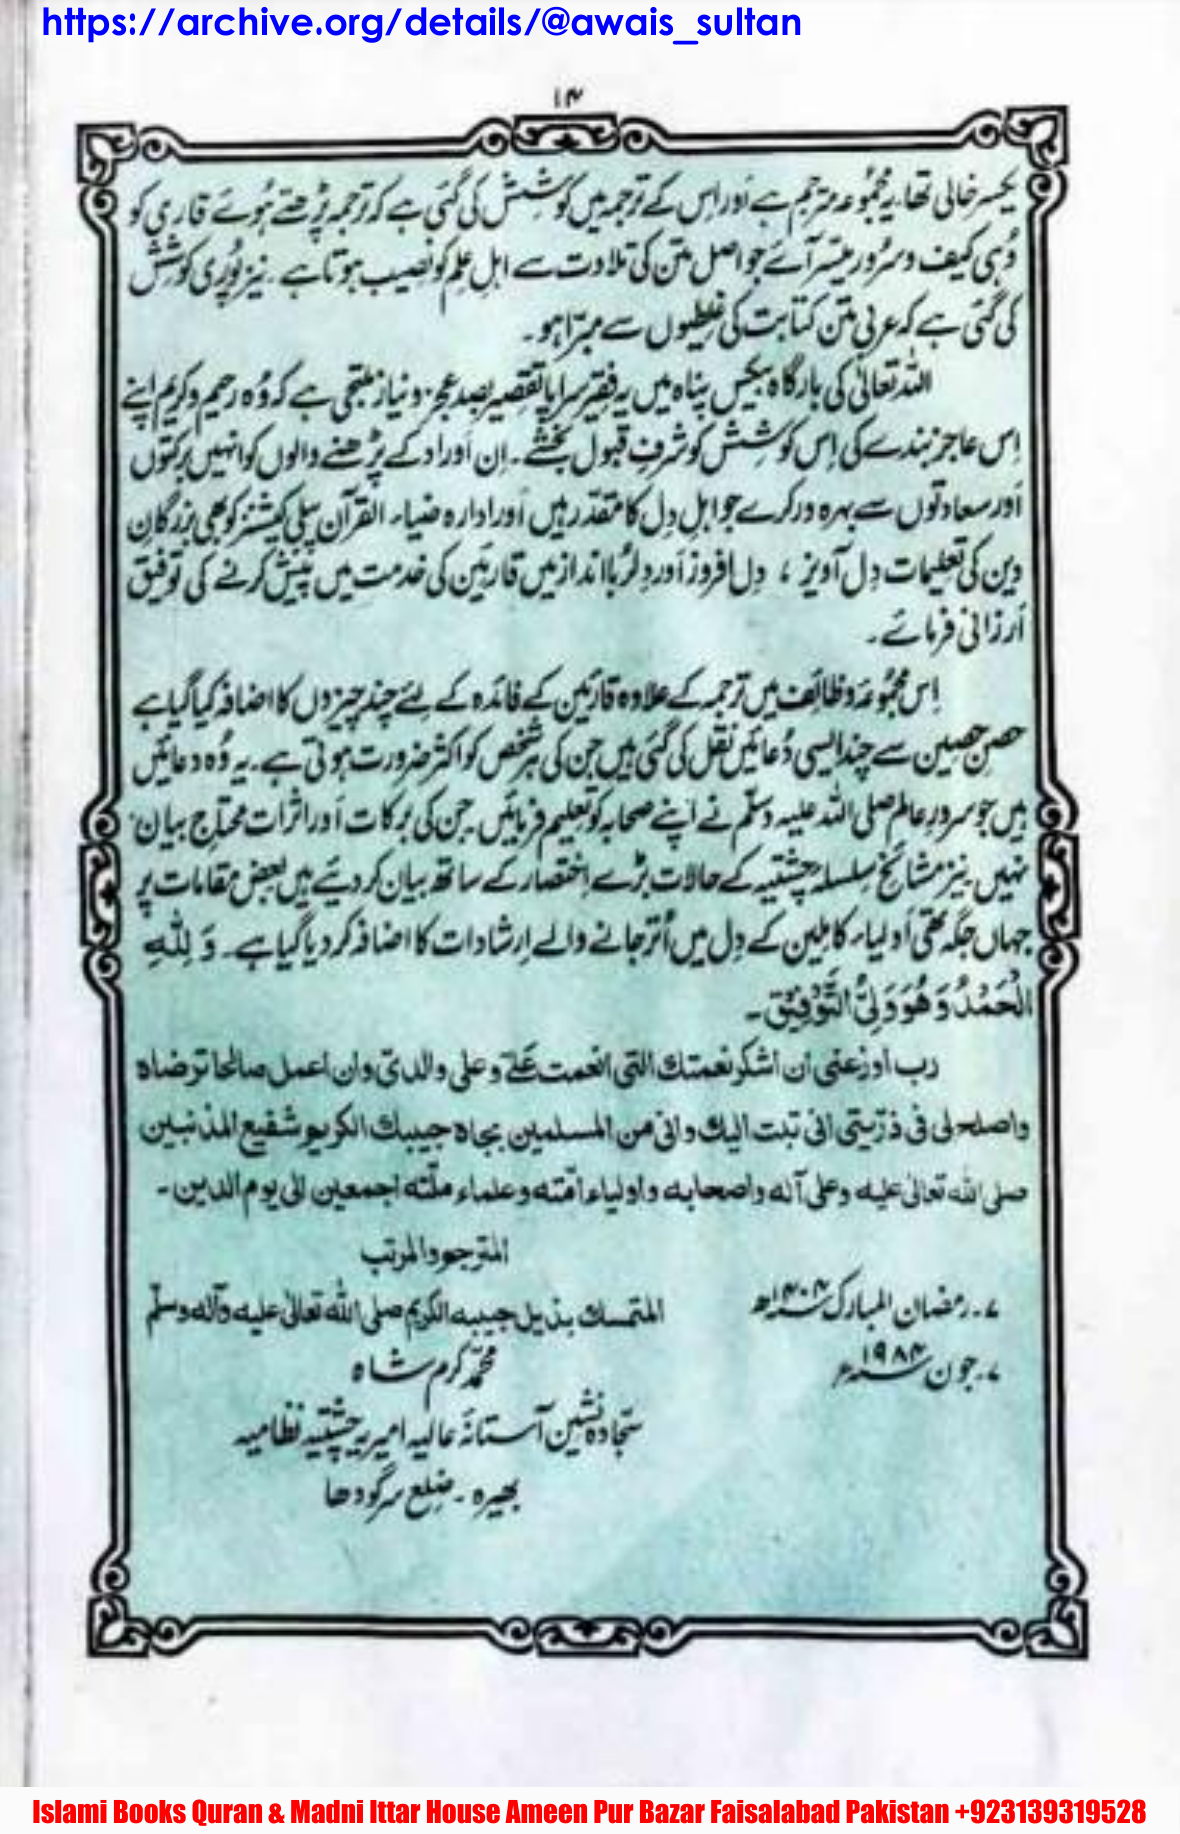 https://archive.org/details/@awais_sultan
۱۴
یکسر خالی تھا۔ یہ مجموعہ مترجم ہے اَور اِس کے ترجمہ میں کوشِش کی گئی ہے کہ ترجمہ پڑھتے ہُوئے قاری کو
وُہی کیف و سرُور میسّر آئے جو اصل متن کی تلاوت سے اہلِ علم کو نصیب ہوتا ہے۔ نیز پُوری کوشِش
کی گئی ہے کہ عربی متن کتابت کی غلطیوں سے مبرّا ہو۔
اللہ تعالیٰ کی بارگاہ بیکس پناہ میں یہ فقیر سراپا تقصیر بصد عجز و نیاز ملتجی ہے کہ وُہ رحیم و کریم اپنے
اِس عاجز بندے کی اِس کوشِش کو شرفِ قبول بخشے۔ اِن اَوراد کے پڑھنے والوں کو انہیں برکتوں
اَور سعادتوں سے بہرہ ور کرے جو اہلِ دِل کا مقدّر ہیں اَور ادارہ ضیاء القرآن پبلی کیشنز کو بھی بزرگانِ
دین کی تعلیمات دِل آویز ، دِل افروز اَور دِلرُبا انداز میں قارئین کی خدمت میں پیش کرنے کی توفیق
اَرزانی فرمائے۔
اِس مجموُعہ وظائف میں ترجمہ کے علاوہ قارئین کے فائدہ کے لیئے چند چیزوں کا اضافہ کیا گیا ہے
حصنِ حصین سے چند ایسی دُعائیں نقل کی گئی ہیں جن کی ہر شخص کو اکثر ضرورت ہوتی ہے۔ یہ وُہ دعائیں
ہیں جو سرورِ عالم صلی اللہ علیہ وسلّم نے اپنے صحابہ کو تعلیم فرمائیں جن کی برکات اَور اثرات محتاجِ بیان
نہیں نیز مشائخ سلسلہ چشتیہ کے حالات بڑے اِختصار کے ساتھ بیان کر دیئے ہیں بعض مقامات پر
جہاں جگہ تھی اَولیاء کاملین کے دِل میں اُتر جانے والے اِرشادات کا اضافہ کر دیا گیا ہے۔ وَ لِلّٰہِ
الْحَمْدُ وَ هُوَ وَلِیُّ التَّوْفِیْق۔
رب اوزعنی ان اشکر نعمتك التی انعمت عَلَیّ وعلی والدیّ وان اعمل صالحا ترضاه
واصلح لی فی ذرّیتی انی تبت الیك وانی من المسلمین بجاه حبیبك الکریم شفیع المذنبین
صلی الله تعالیٰ علیه وعلی آله واصحابه واولیاء امّته وعلماء ملّته اجمعین الی یوم الدین۔
المترجم والمرتب
۷۔ رمضان المبارک ۱۴۰۴ھ
المتمسك بذیل حبیبه الکریم صلی الله تعالیٰ علیه وآله وسلّم
۷۔ جون ۱۹۸۴ء
محمّد کرم شاہ
سجّادہ نشین آستانۂ عالیہ امیریہ چشتیہ نظامیہ
بھیرہ ۔ ضلع سرگودھا
Islami Books Quran & Madni Ittar House Ameen Pur Bazar Faisalabad Pakistan +923139319528